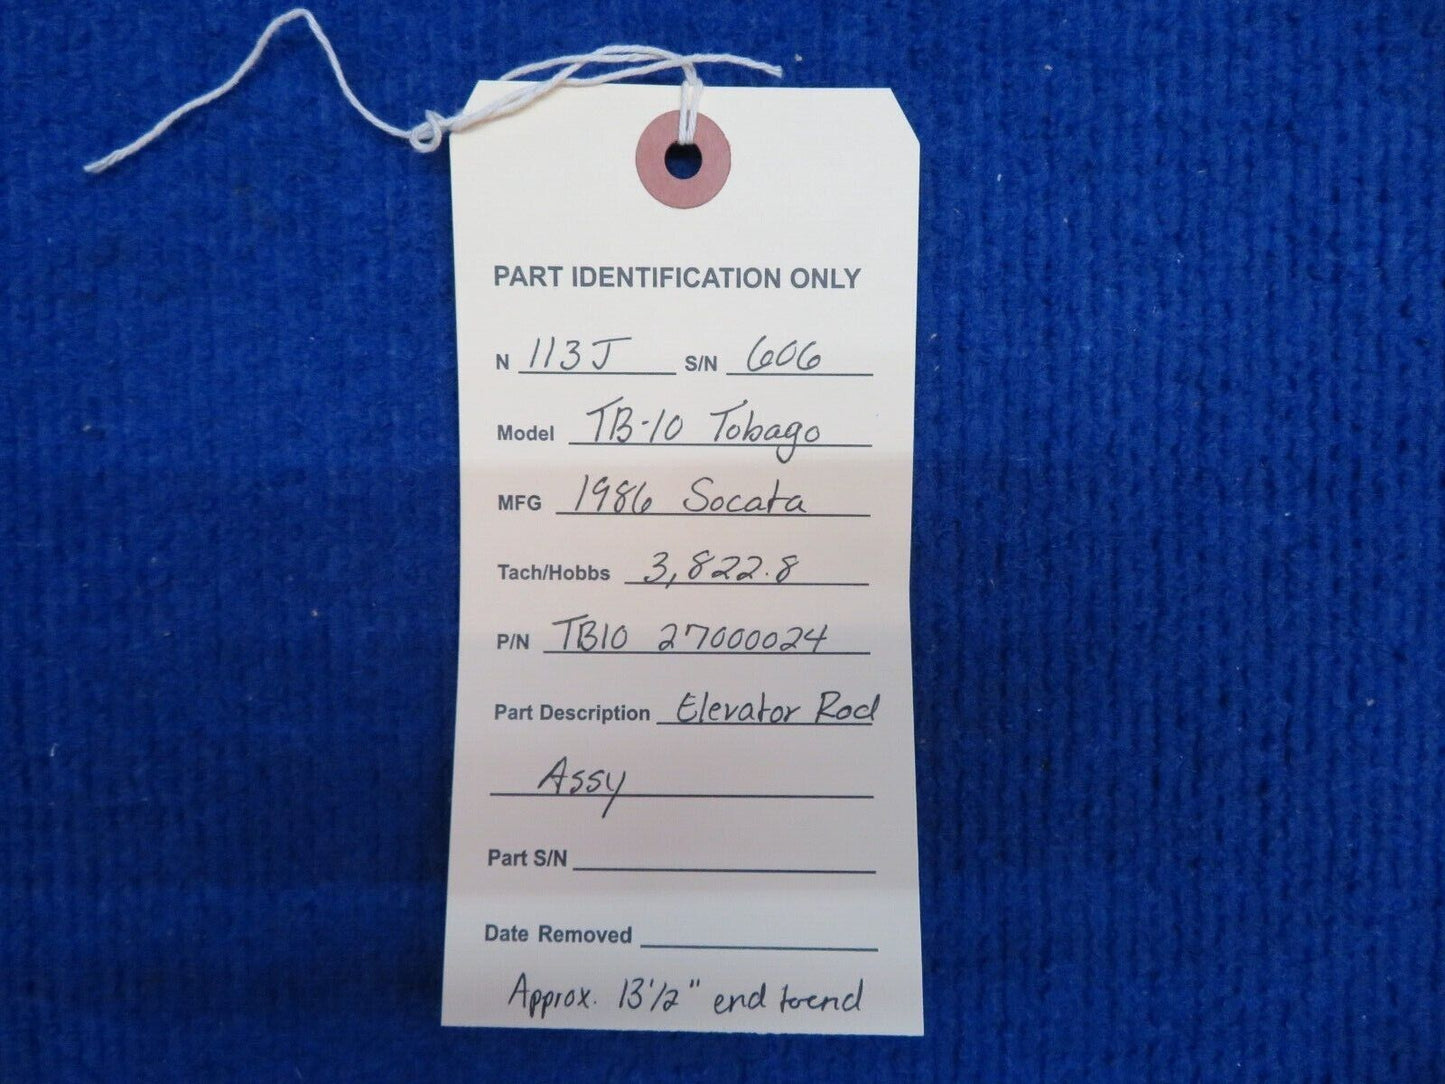 PART IDENTIFICATION ONLY
N 113J S/N 606
Model TB-10 Tobago
MFG 1986 Socata
Tach/Hobbs 3,822.8
P/N TB10 27000024
Part Description Elevator Rod
Assy
Part S/N
Date Removed
Approx. 13 1/2" end to end